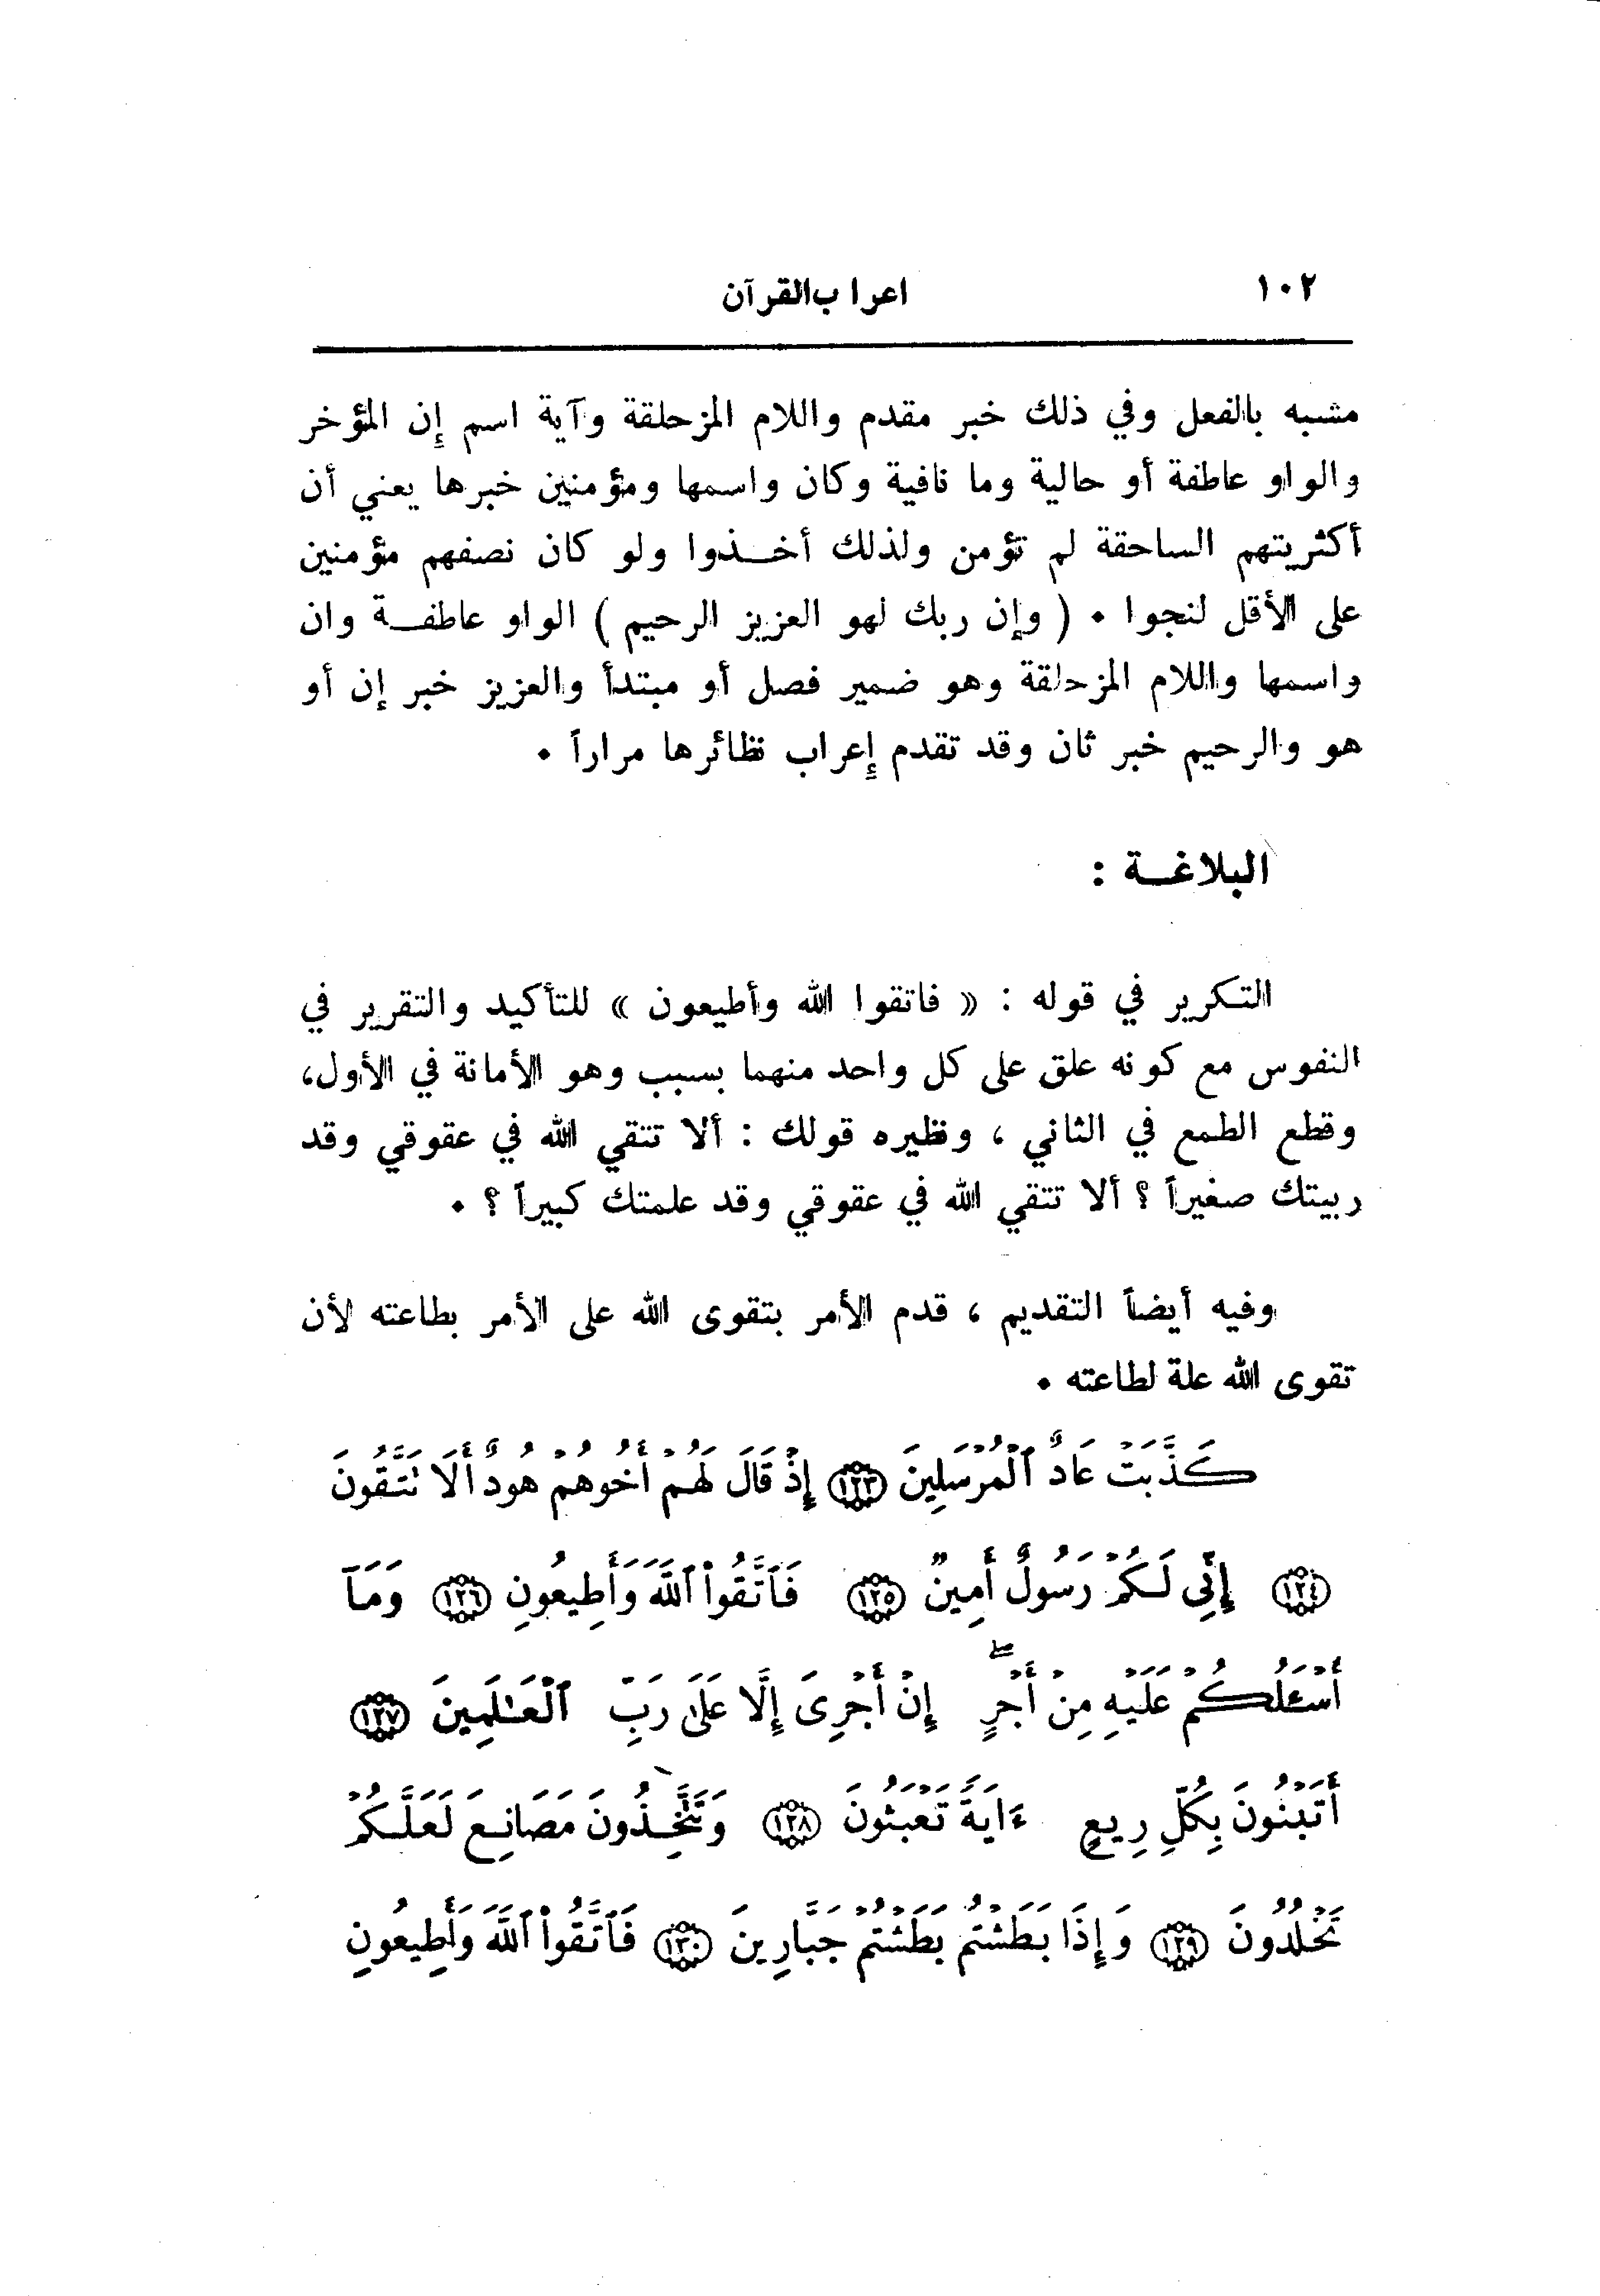 ١٠٢
اعراب القرآن
مشبه بالفعل وفي ذلك خبر مقدم واللام المزحلقة وآية اسم إن المؤخر
والواو عاطفة أو حالية وما نافية وكان واسمها ومؤمنين خبرها يعني أن
أكثريتهم الساحقة لم تؤمن ولذلك أخـــذوا ولو كان نصفهم مؤمنين
على الأقل لنجوا . ( وإن ربك لهو العزيز الرحيم ) الواو عاطفـــة وان
واسمها واللام المزحلقة وهو ضمير فصل أو مبتدأ والعزيز خبر إن أو
هو والرحيم خبر ثان وقد تقدم إعراب نظائرها مراراً .
البلاغـــة :
التكرير في قوله : « فاتقوا الله وأطيعون » للتأكيد والتقرير في
النفوس مع كونه علق على كل واحد منهما بسبب وهو الأمانة في الأول،
وقطع الطمع في الثاني ، ونظيره قولك : ألا تتقي الله في عقوقي وقد
ربيتك صغيراً ؟ ألا تتقي الله في عقوقي وقد علمتك كبيراً ؟ .
وفيه أيضاً التقديم ، قدم الأمر بتقوى الله على الأمر بطاعته لأن
تقوى الله علة لطاعته .
كَذَّبَتْ عَادٌ ٱلْمُرْسَلِينَ ١٢٣ إِذْ قَالَ لَهُمْ أَخُوهُمْ هُودٌ أَلَا تَتَّقُونَ
١٢٤ إِنِّى لَكُمْ رَسُولٌ أَمِينٌ ١٢٥ فَٱتَّقُوا۟ ٱللَّهَ وَأَطِيعُونِ ١٢٦ وَمَآ
أَسْـَٔلُكُمْ عَلَيْهِ مِنْ أَجْرٍ ۖ إِنْ أَجْرِىَ إِلَّا عَلَىٰ رَبِّ ٱلْعَـٰلَمِينَ ١٢٧
أَتَبْنُونَ بِكُلِّ رِيعٍ ءَايَةً تَعْبَثُونَ ١٢٨ وَتَتَّخِذُونَ مَصَانِعَ لَعَلَّكُمْ
تَخْلُدُونَ ١٢٩ وَإِذَا بَطَشْتُم بَطَشْتُمْ جَبَّارِينَ ١٣٠ فَٱتَّقُوا۟ ٱللَّهَ وَأَطِيعُونِ